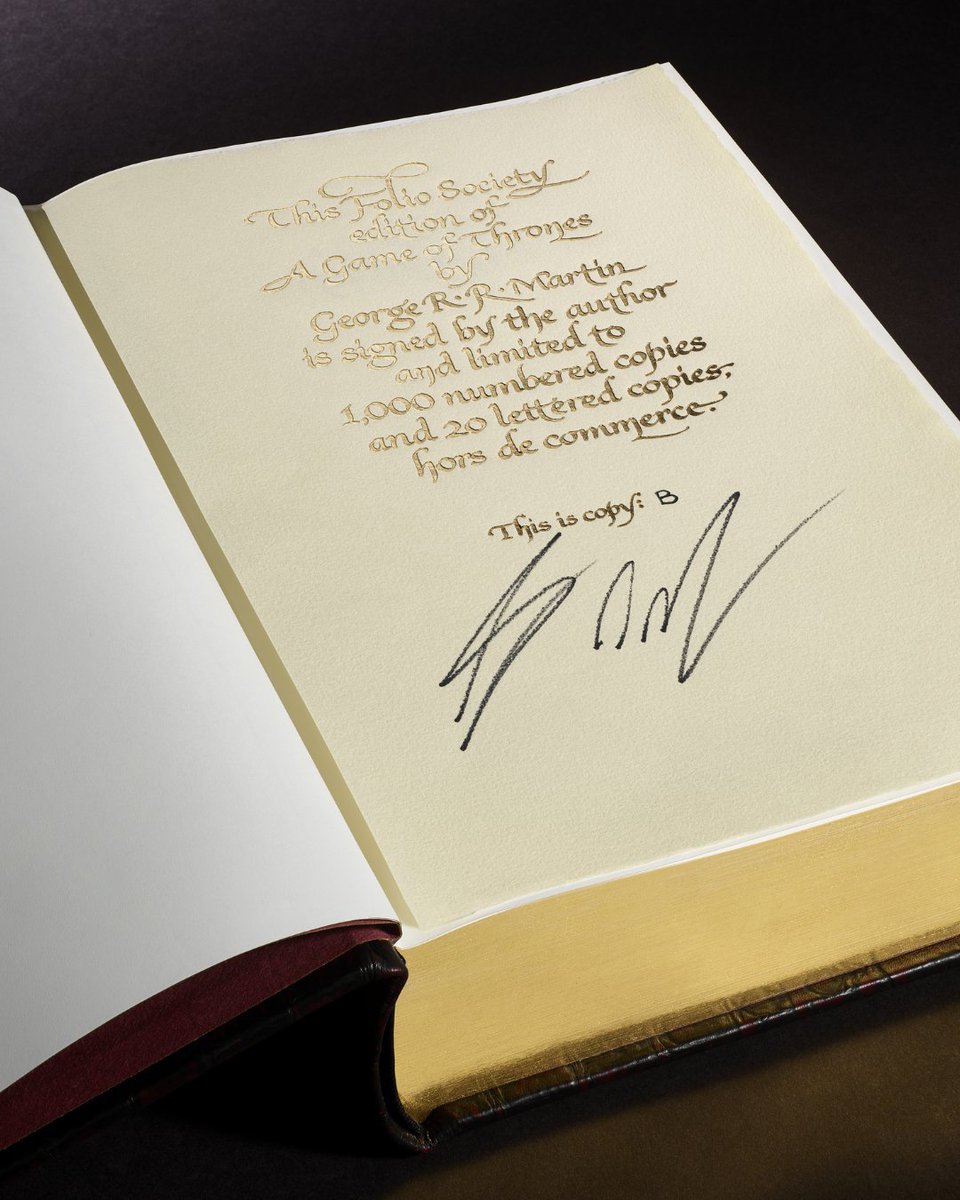 This Folio Society
edition of
A Game of Thrones
by
George R. R. Martin
is signed by the author
and limited to
1,000 numbered copies
and 20 lettered copies,
hors de commerce.
This is copy: B